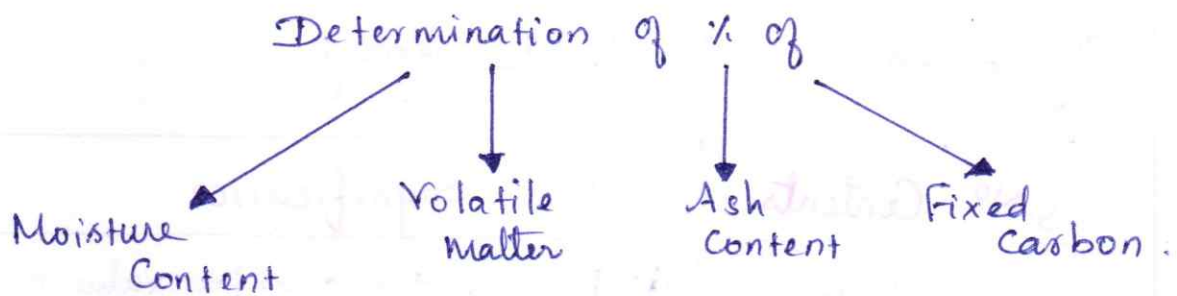 Determination of % of
Moisture Content
Volatile matter
Ash Content
Fixed Carbon.